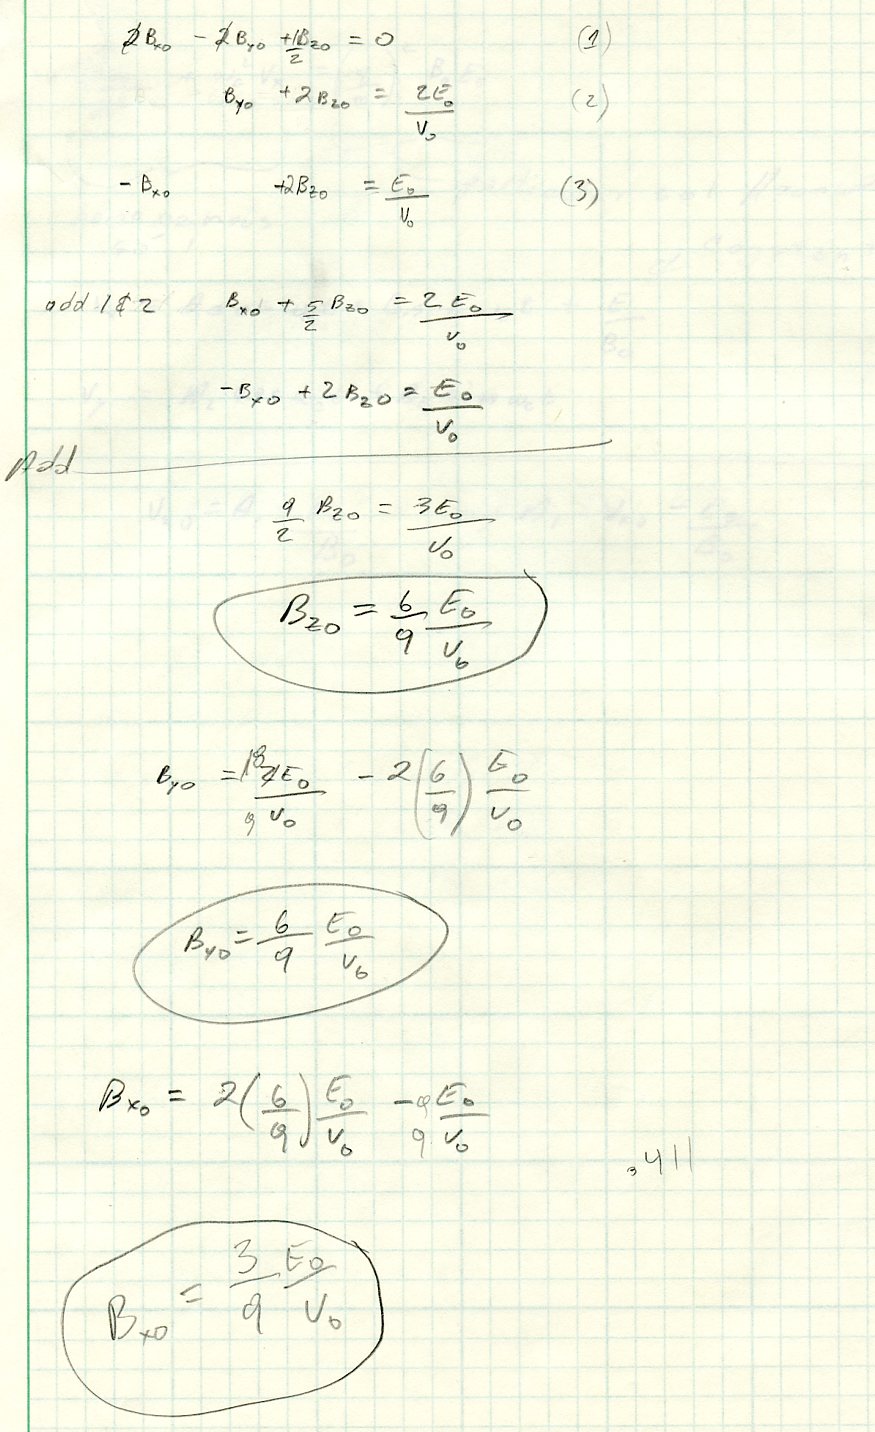 2B_x0 - 2B_y0 + 1/2 B_z0 = 0 (1)
B_y0 + 2B_z0 = 2E_0/V_0 (2)
-B_x0 + 2B_z0 = E_0/V_0 (3)
add 1 & 2 B_x0 + 5/2 B_z0 = 2 E_0/V_0
-B_x0 + 2 B_z0 = E_0/V_0
Add
9/2 B_z0 = 3E_0/V_0
B_z0 = 6/9 E_0/V_0
B_y0 = 18 2E_0/9 V_0 - 2(6/9) E_0/V_0
B_y0 = 6/9 E_0/V_0
B_x0 = 2(6/9) E_0/V_0 - 9/9 E_0/V_0
.411
B_x0 = 3/9 E_0/V_0